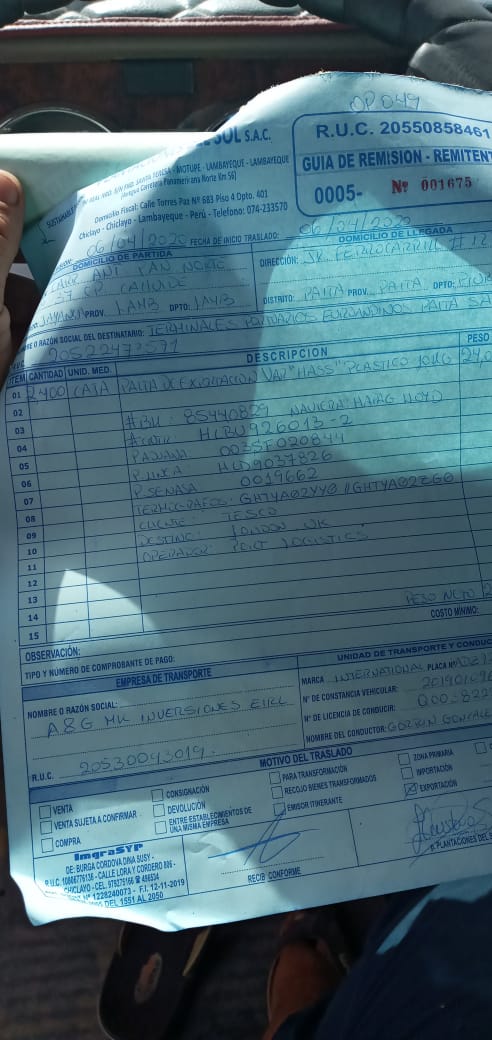 OP 049
SOL S.A.C.
R.U.C. 20550858461
GUIA DE REMISION - REMITENTE
0005- Nº 001675
MOTUPE - LAMBAYEQUE - LAMBAYEQUE
(Antigua Carretera Panamericana Norte Km 56)
Domicilio Fiscal: Calle Torres Paz Nº 683 Piso 4 Dpto. 401
Chiclayo - Lambayeque - Perú - Telefono: 074-233570
06/04/2020 FECHA DE INICIO TRASLADO: 06/04/2020
DOMICILIO DE PARTIDA
DOMICILIO DE LLEGADA
PAN NORTE
DIRECCIÓN: JR. FERROCARRIL # 12
JAYANCA PROV. LAMB DPTO: LAMB
DISTRITO: PAITA PROV. PAITA DPTO:
RAZON SOCIAL DEL DESTINATARIO: TERMINALES PORTUARIOS EUROANDINOS PAITA SA
20522473571
ITEM CANTIDAD UNID. MED. DESCRIPCION PESO
01 2,400 CAJA PALTA DE EXPORTACION VAR "HASS" PLASTICO 10KG
02
03 # BK: 85440829 NAVIERA: HAPAG
04 # CNTR: HLBU926013-2
05 P. ADUANA 003SF020844
06 P. LINEA: HLD9037826
07 P. SENASA 0019662
08 TERMOGRAFOS: GHTYA02YY0 // GHTYA02ZG0
09 CLIENTE: TESCO
10 DESTINO: LONDON UK
11 OPERADOR: PORT LOGISTICS
12
13
14 PESO NETO
15 COSTO MÍNIMO:
OBSERVACIÓN:
TIPO Y NÚMERO DE COMPROBANTE DE PAGO:
EMPRESA DE TRANSPORTE
UNIDAD DE TRANSPORTE Y CONDUC
NOMBRE O RAZÓN SOCIAL:
A&G MK INVERSIONES EIRL
R.U.C. 20530043019.
MARCA INTERNATIONAL PLACA Nº
Nº DE CONSTANCIA VEHICULAR:
Nº DE LICENCIA DE CONDUCIR:
NOMBRE DEL CONDUCTOR:
MOTIVO DEL TRASLADO
VENTA
VENTA SUJETA A CONFIRMAR
COMPRA
CONSIGNACIÓN
DEVOLUCIÓN
ENTRE ESTABLECIMIENTOS DE
UNA MISMA EMPRESA
PARA TRANSFORMACIÓN
RECOJO BIENES TRANSFORMADOS
EMISOR ITINERANTE
ZONA PRIMARIA
IMPORTACIÓN
EXPORTACIÓN
ImgraSYP
DE: BURGA CORDOVA DINA SUSY -
R.U.C. 10806776136 - CALLE LORA Y CORDERO 896 -
CHICLAYO - CEL. 979275166 ☎ 496534
Nº 1228240073 - F.I. 12-11-2019
DEL 1551 AL 2050
RECIBÍ CONFORME
P. PLANTACIONES DEL S